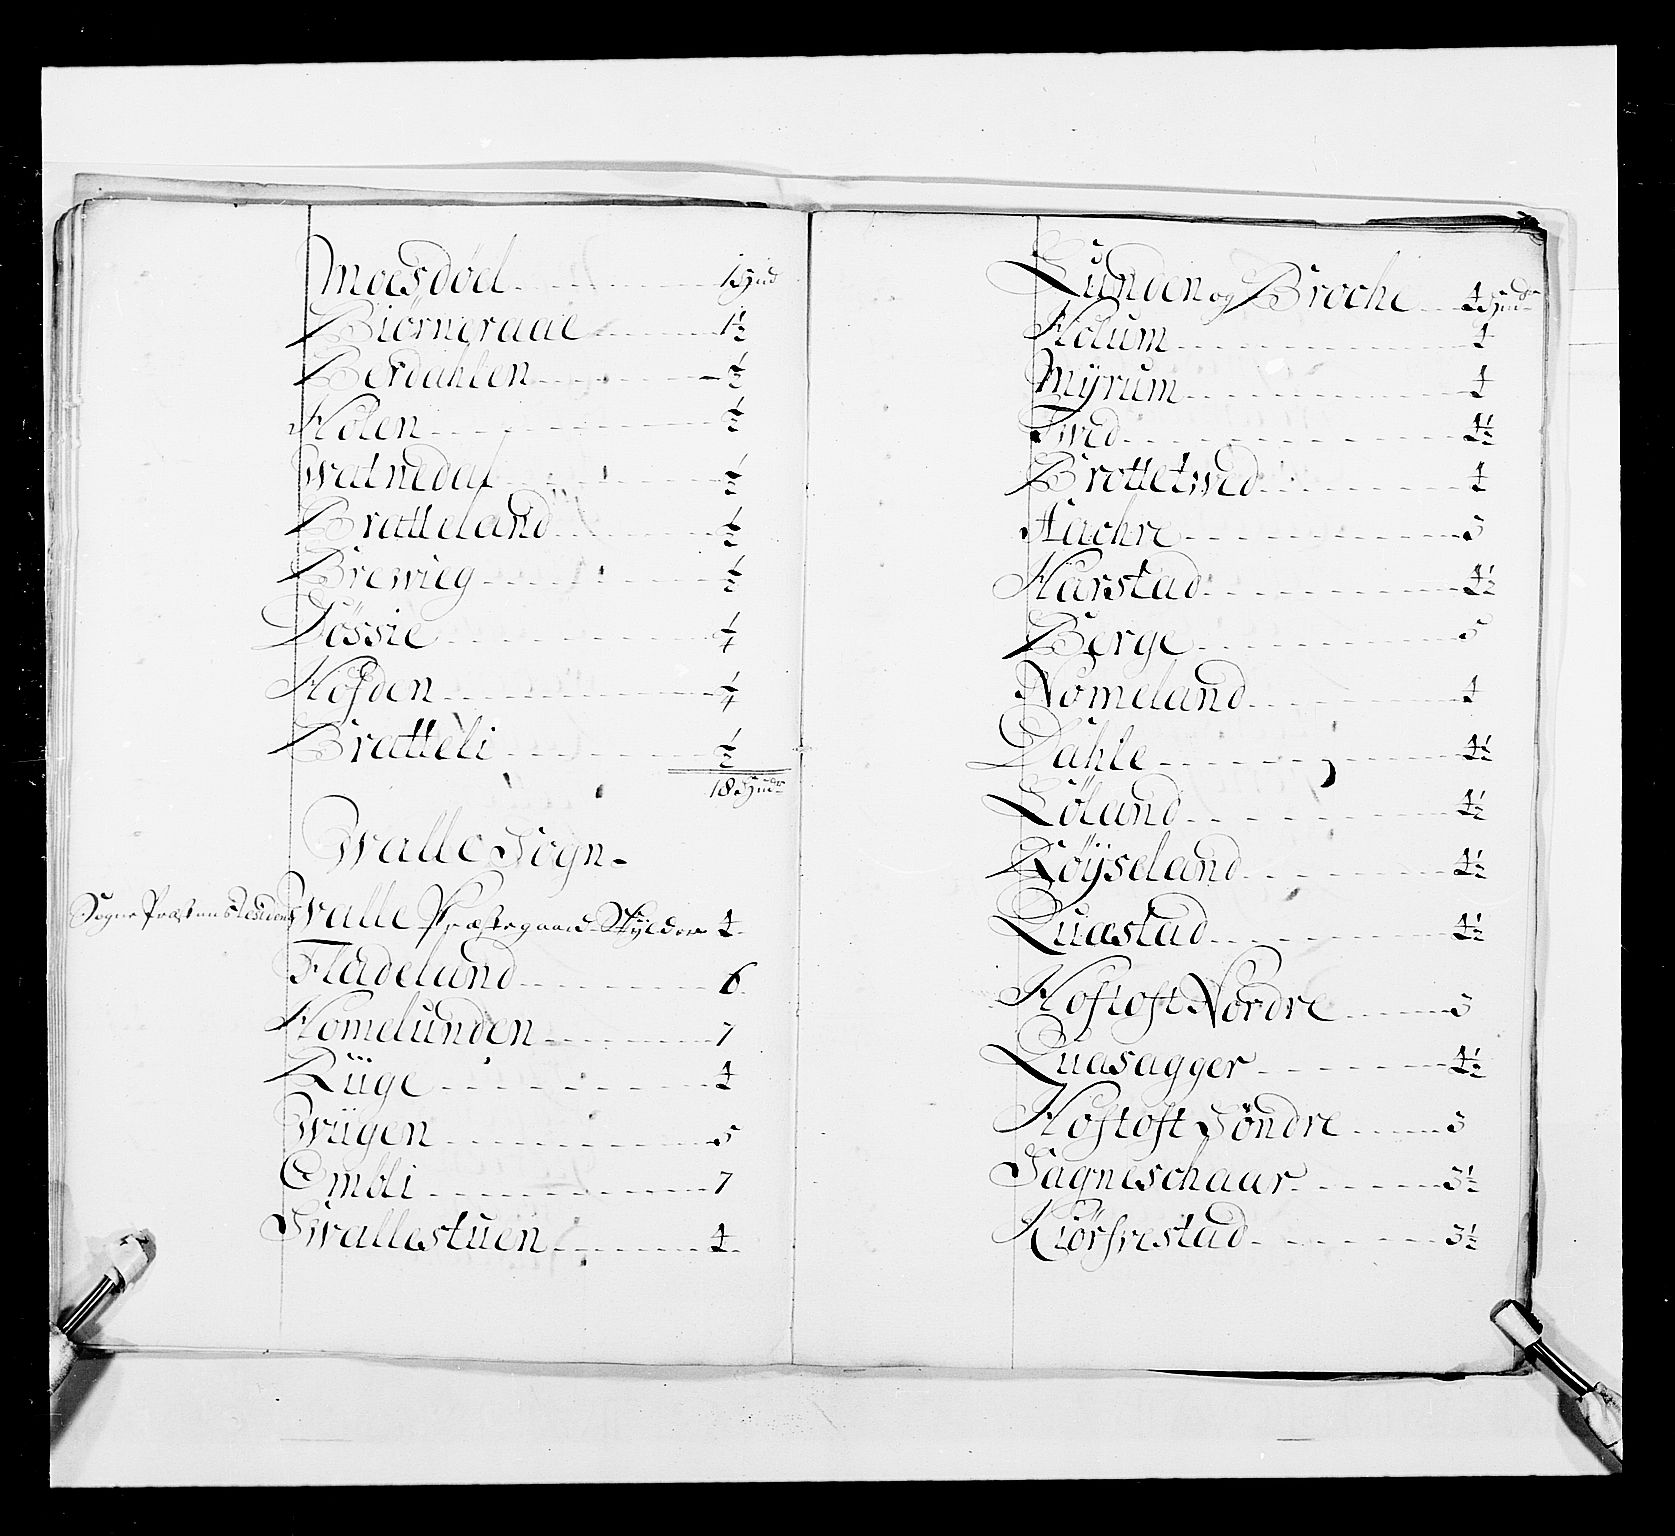 Moesdøel 1 Hud
Biørneraae 1½
Berdahlen ½
Hølen ½
Watnedal ½
Bratteland ½
Brewieg ½
Døssie ¼
Høfden ¼
Bratteli ½
18 Hudr
Walle Sogn
Sogne Præstens Residens Walle Præstegaard Skylder 4
Fladeland 6
Homelunden 7
Rüge 4
Wiigen 5
Embli 7
Twallestuen 4
Lunden og Broche 4 Hudr
Holum 4
Myrum 4
Twed 4½
Brottetwed 4
Aachre 5
Harstad 4½
Berge 5
Nomeland 4
Dahle 4½
Løland 4½
Røyseland 4½
Quastad 4½
Hoftoft Nordre 3
Quasagger 4½
Hoftoft Søndre 3
Sagneschaar 3½
Kiørfvestad 3½